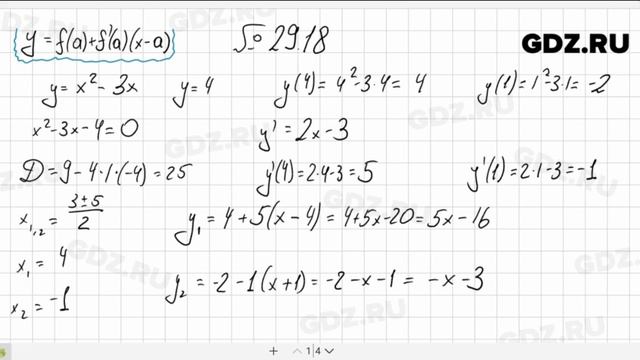 y = f(a)+f'(a)(x-a) № 29.18 GDZ.RU
y = x² - 3x y = 4 y(4) = 4² - 3·4 = 4 y(1) = 1² - 3·1 = -2
x² - 3x - 4 = 0 y' = 2x - 3
D = 9 - 4·1·(-4) = 25 y'(4) = 2·4 - 3 = 5 y'(1) = 2·1 - 3 = -1
x₁,₂ = (3±5)/2 y₁ = 4 + 5(x - 4) = 4 + 5x - 20 = 5x - 16
x₁ = 4
x₂ = -1 y₂ = -2 - 1(x+1) = -2 - x - 1 = -x - 3
1|4